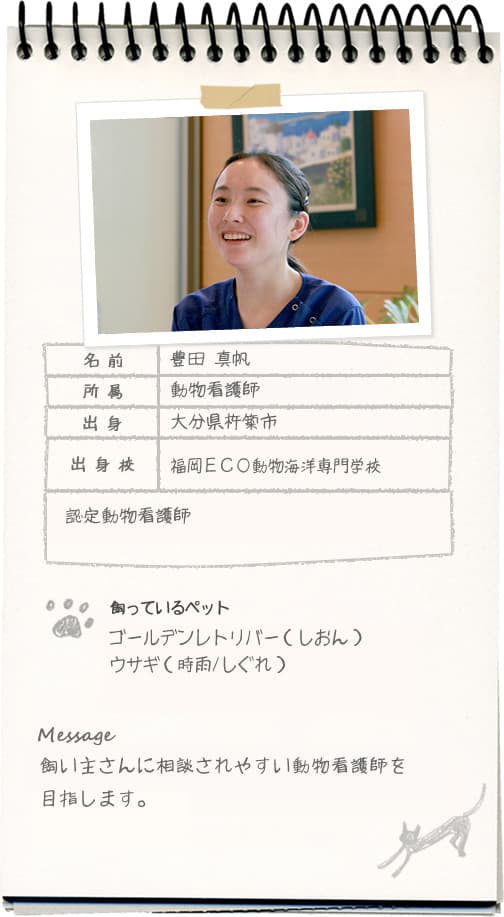 名前 豊田 真帆
所属 動物看護師
出身 大分県杵築市
出身校 福岡ECO動物海洋専門学校
認定動物看護師
飼っているペット
ゴールデンレトリバー(しおん)
ウサギ(時雨/しぐれ)
Message
飼い主さんに相談されやすい動物看護師を
目指します。